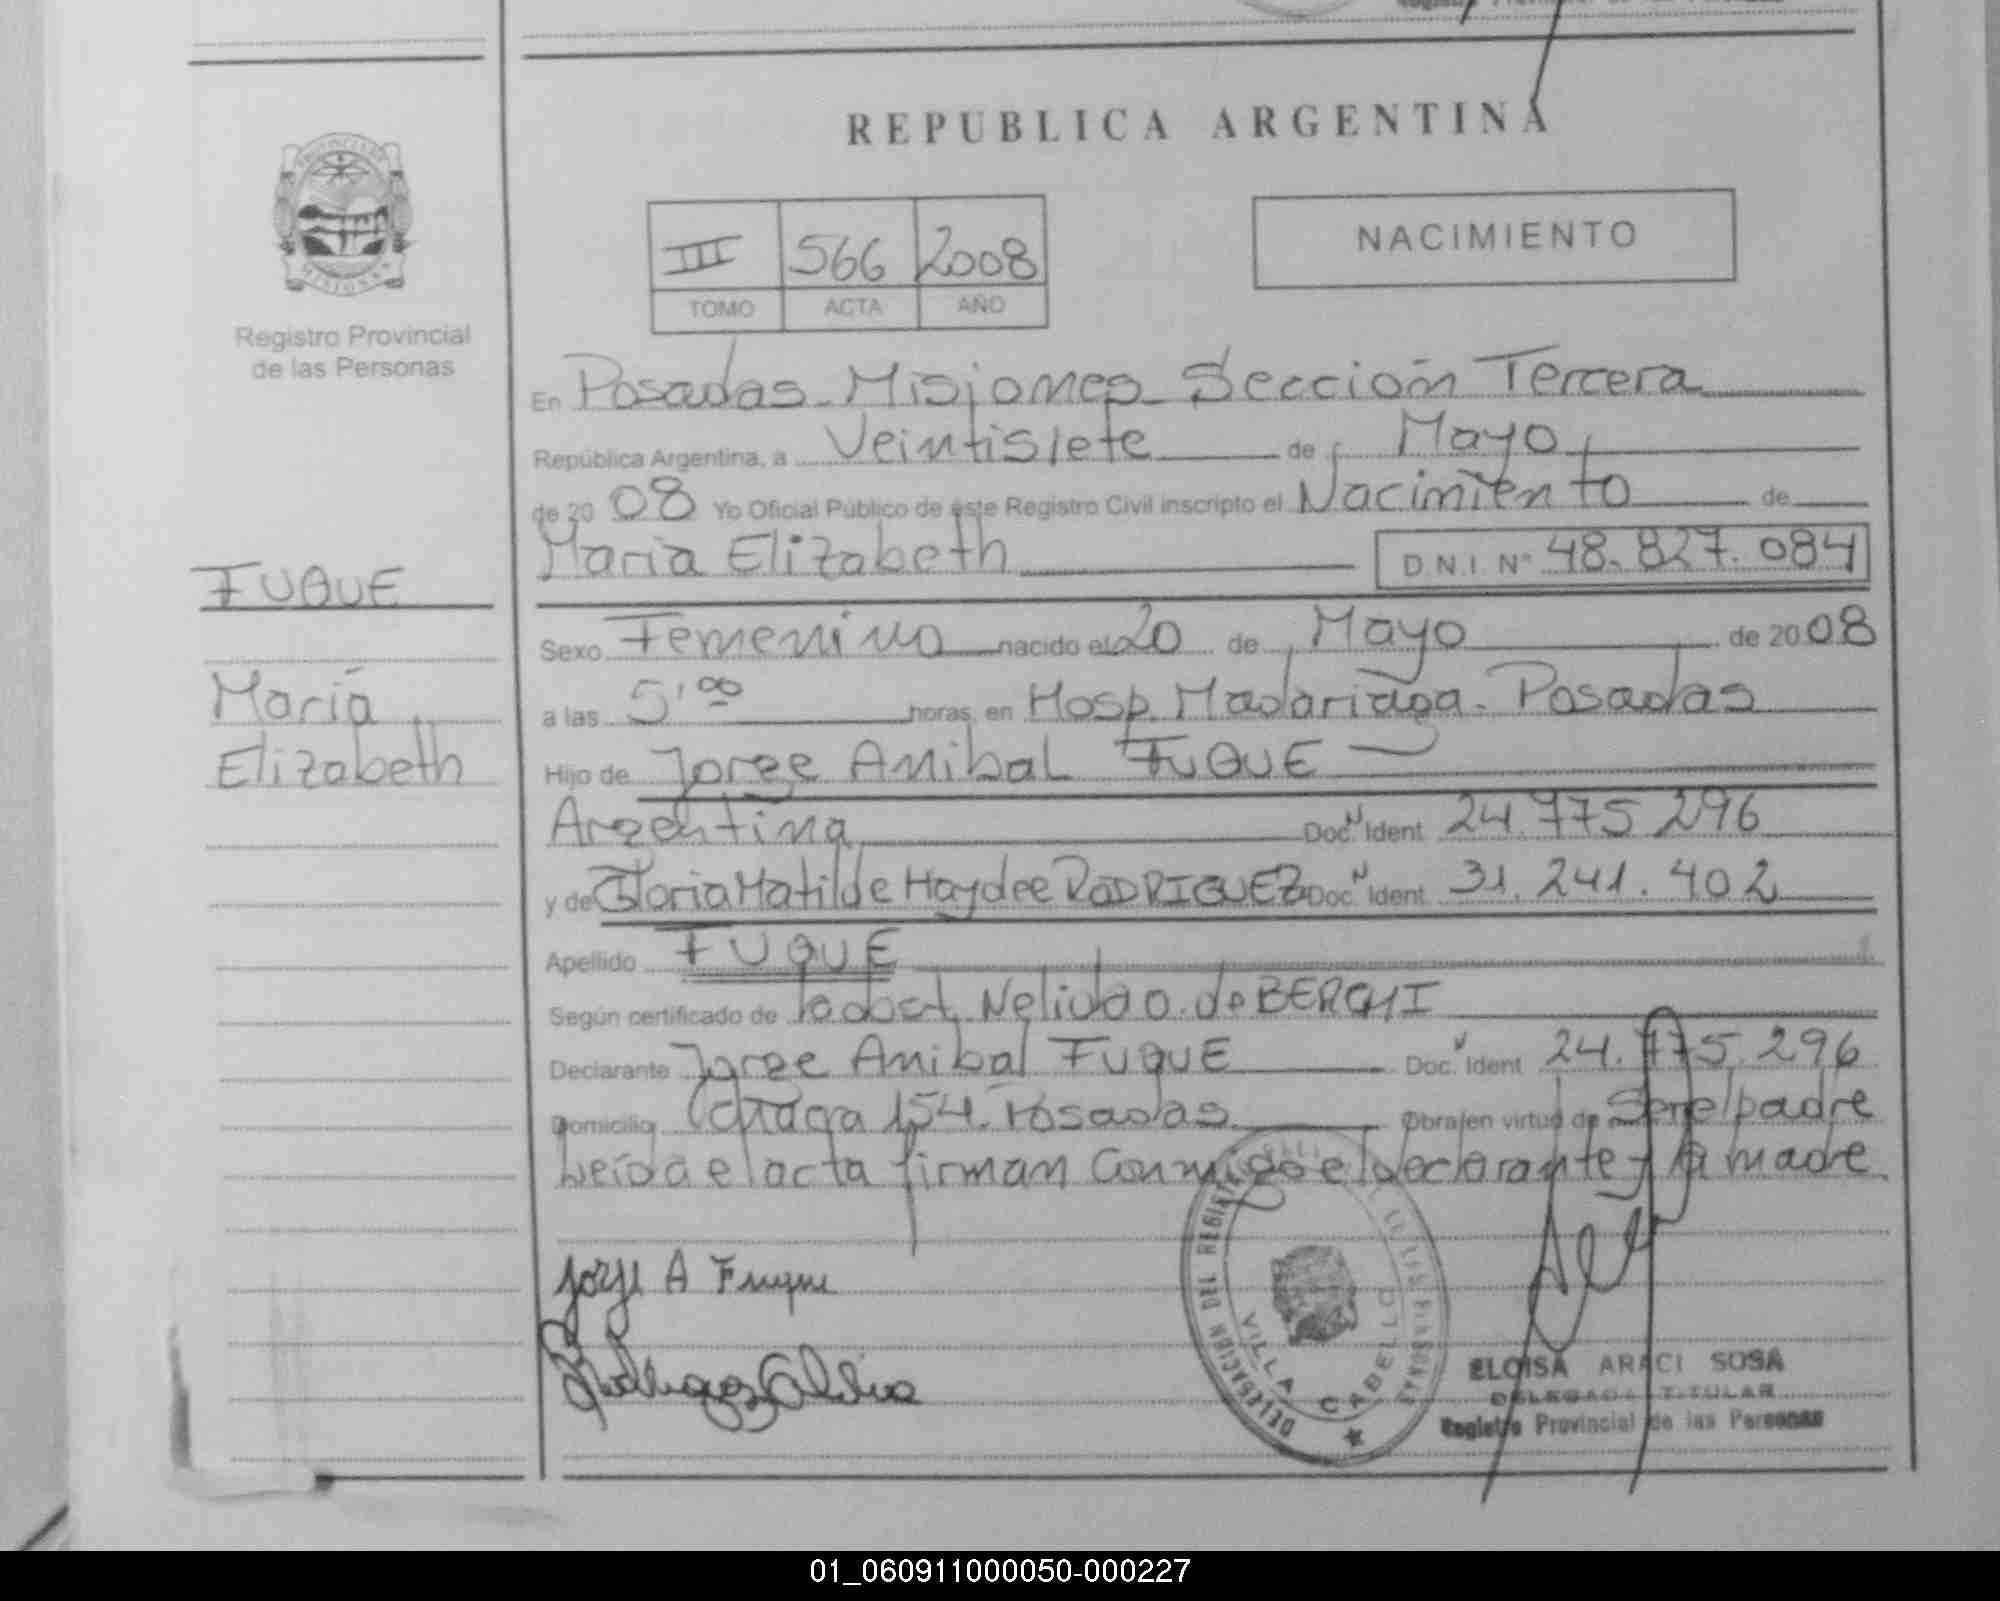 REPUBLICA ARGENTINA
III 566 2008
TOMO ACTA AÑO
NACIMIENTO
Registro Provincial
de las Personas
En Posadas Misiones Sección Tercera
República Argentina, a Veintisiete de Mayo
de 20 08 Yo Oficial Público de éste Registro Civil inscripto el Nacimiento de
María Elizabeth D.N.I. Nº 48.827.084
FUQUE
María
Elizabeth
Sexo Femenino nacido el 20 de Mayo de 20 08
a las 5,00 horas, en Hosp. Madariaga. Posadas
Hijo de Jorge Anibal FUQUE
Argentina Doc. Ident 24.775.296
y de Gloria Matilde Haydee RODRIGUEZ Doc. Ident 31.241.402
Apellido FUQUE
Según certificado de Nelida O. de
Declarante Jorge Anibal FUQUE Doc. Ident 24.775.296
Domicilio 154. Posadas Obra en virtud de Ser el padre
Leída el acta firman conmigo el declarante y la madre
Jorge A Fuque
DELEGACION DEL REGISTRO
VILLA CABELLO
ELOISA ARACI SOSA
DELEGADA TITULAR
Registro Provincial de las Personas
01_060911000050-000227